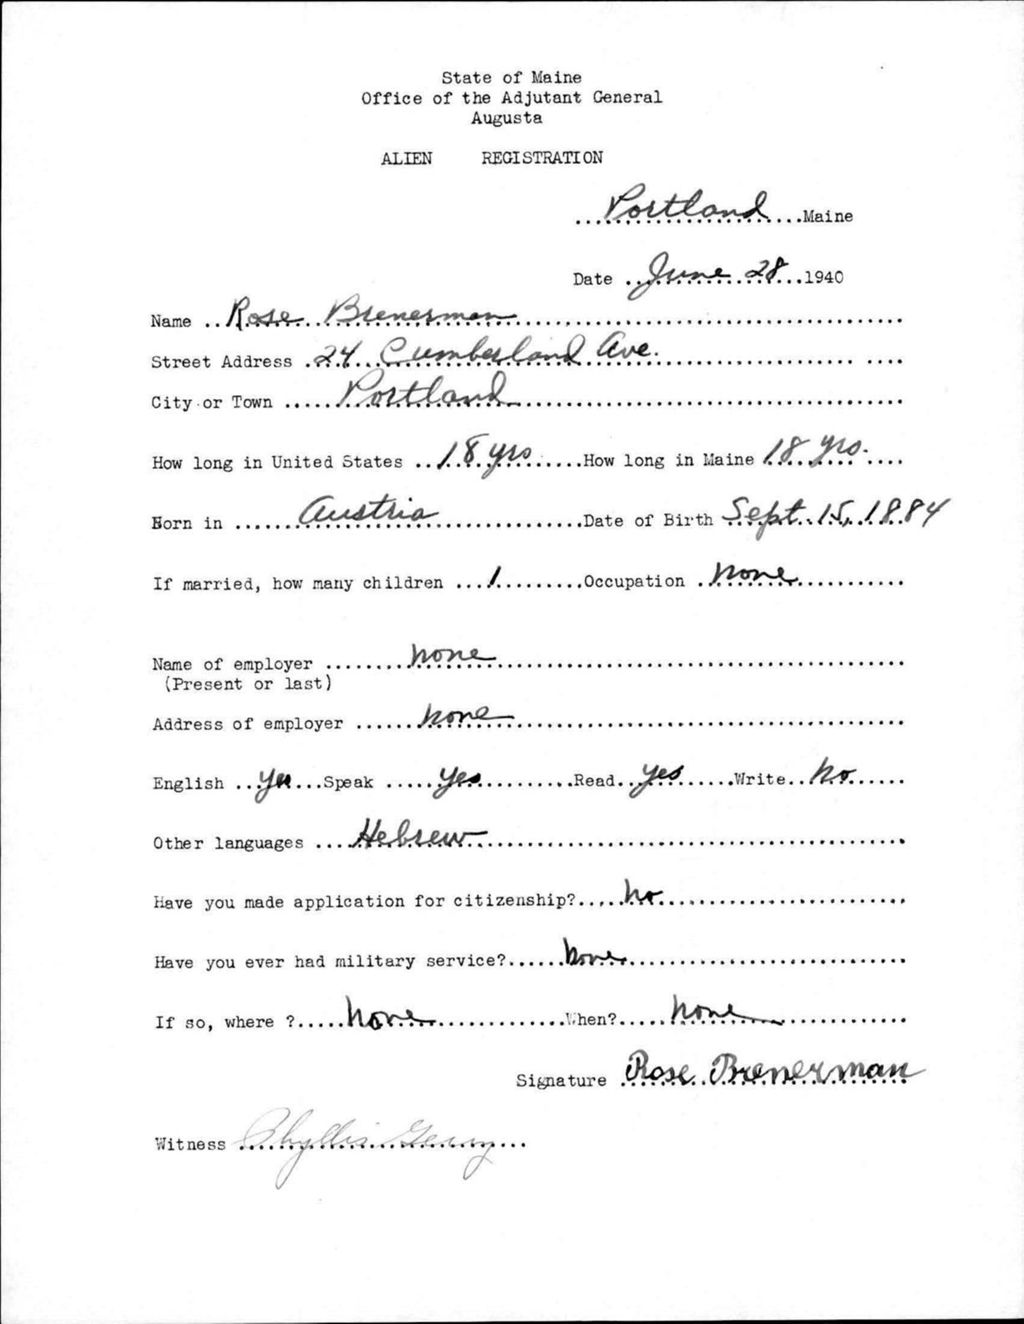 State of Maine
Office of the Adjutant General
Augusta
ALIEN REGISTRATION
...Portland...Maine
Date ..June 28...1940
Name ..Rose Brenerman...
Street Address .24 Cumberland Ave....
City or Town .....Portland...
How long in United States ..18 yrs......How long in Maine 18 yrs.....
Born in ......Austria...Date of Birth Sept. 15, 1884
If married, how many children ...1.........Occupation .None...
Name of employer ........None...
(Present or last)
Address of employer ......None...
English ..Yes...Speak .....Yes...Read..Yes......Write..No......
Other languages ....Hebrew...
Have you made application for citizenship?.....No...
Have you ever had military service?......None...
If so, where ?.....None...When?.....None...
Signature .Rose Brenerman
Witness Phyllis ...